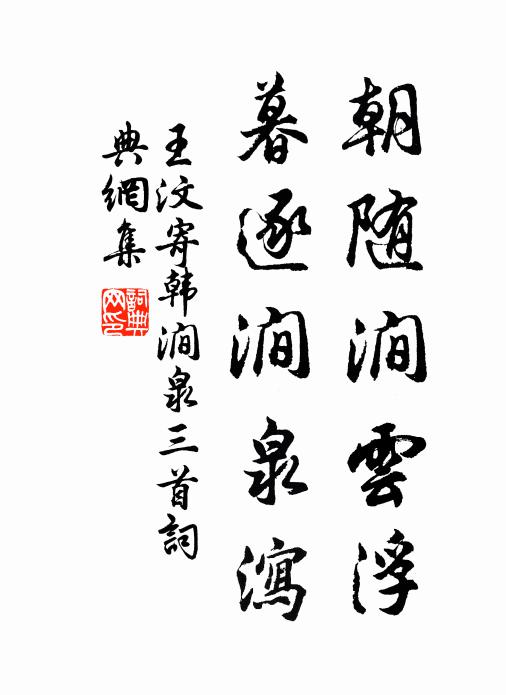 朝随澗雲浮
暮逐澗泉瀉
王汶寄韩澗泉三首詞
典網集
詞典網印